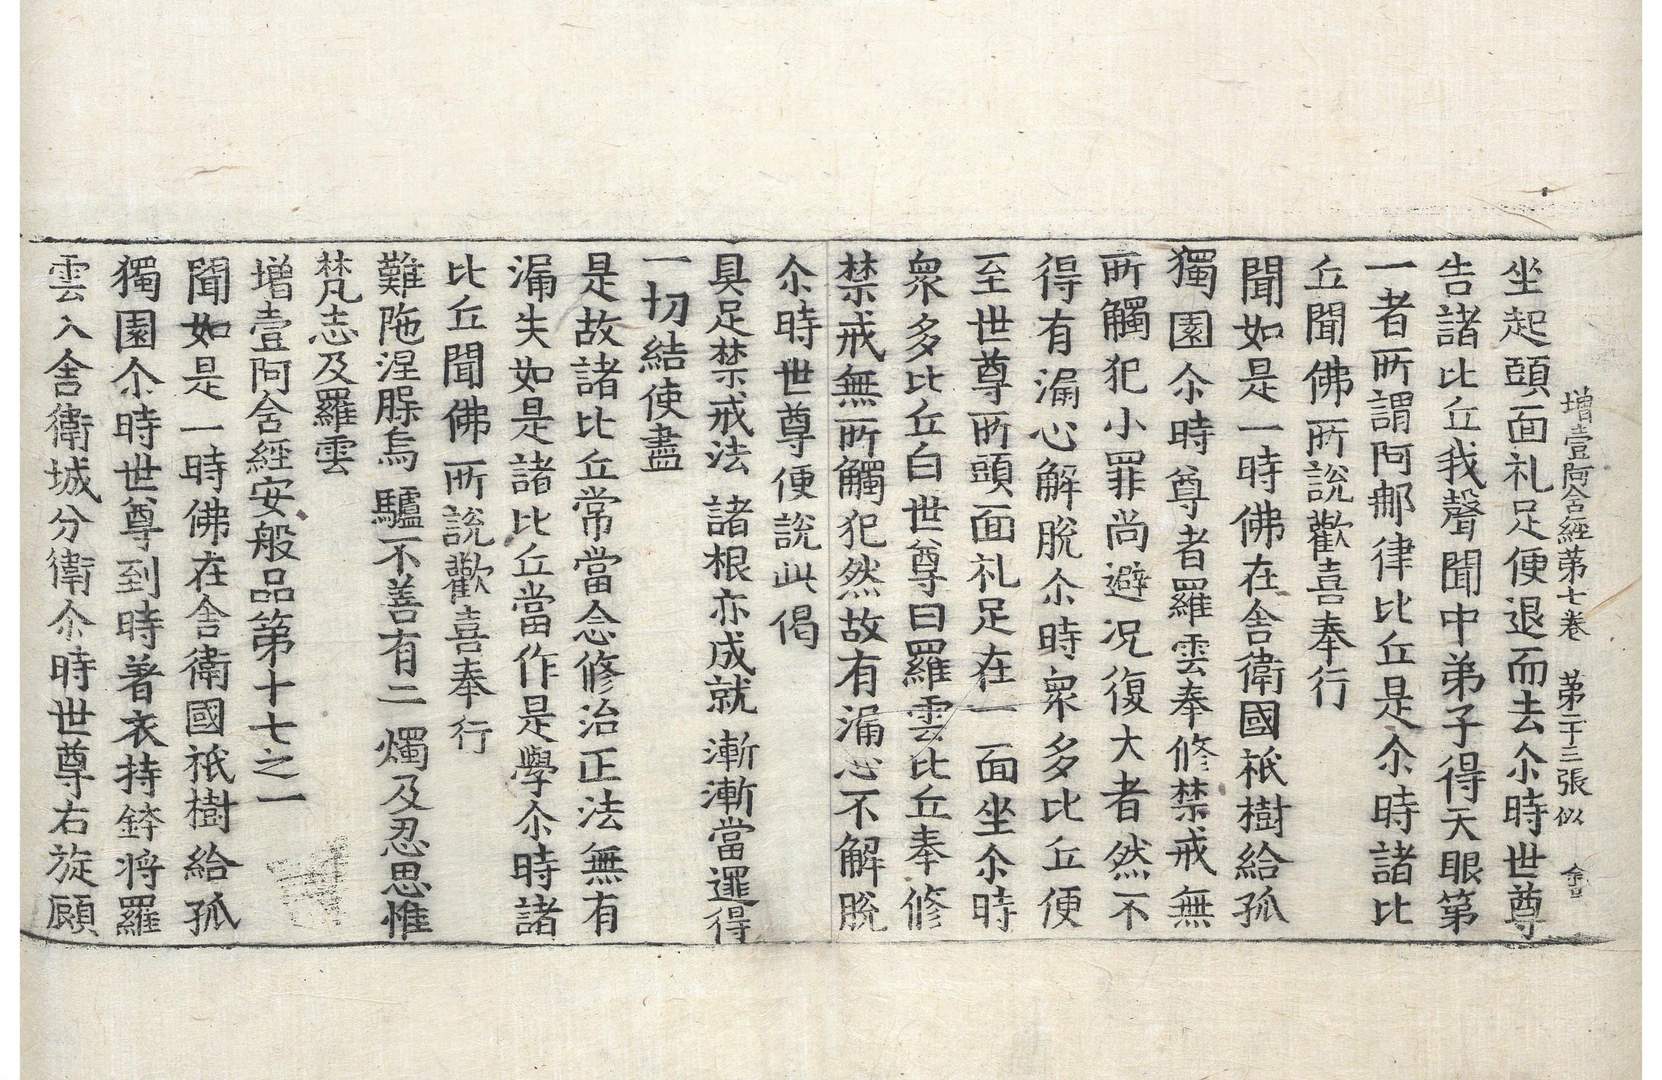 增壹阿含經第七卷　第二十三張 似 㑹
坐起頭面礼足便退而去尒時世尊
告諸比丘我聲聞中弟子得天眼第
一者所謂阿那律比丘是尒時諸比
丘聞佛所說歡喜奉行
聞如是一時佛在舍衛國祇樹給孤
獨園尒時尊者羅雲奉修禁戒無
所觸犯小罪尚避况復大者然不
得有漏心解脫尒時衆多比丘便
至世尊所頭面礼足在一面坐尒時
衆多比丘白世尊曰羅雲比丘奉修
禁戒無所觸犯然故有漏心不解脫
尒時世尊便說此偈
具足禁戒法　諸根亦成就　漸漸當逮得
一切結使盡
是故諸比丘常當念修治正法無有
漏失如是諸比丘當作是學尒時諸
比丘聞佛所說歡喜奉行
難陁涅槃烏　驢不善有二　燭及忍思惟
梵志及羅雲
增壹阿含經安般品第十七之一
聞如是一時佛在舍衛國祇樹給孤
獨園尒時世尊到時著衣持鉢將羅
雲入舍衛城分衛尒時世尊右旋顧